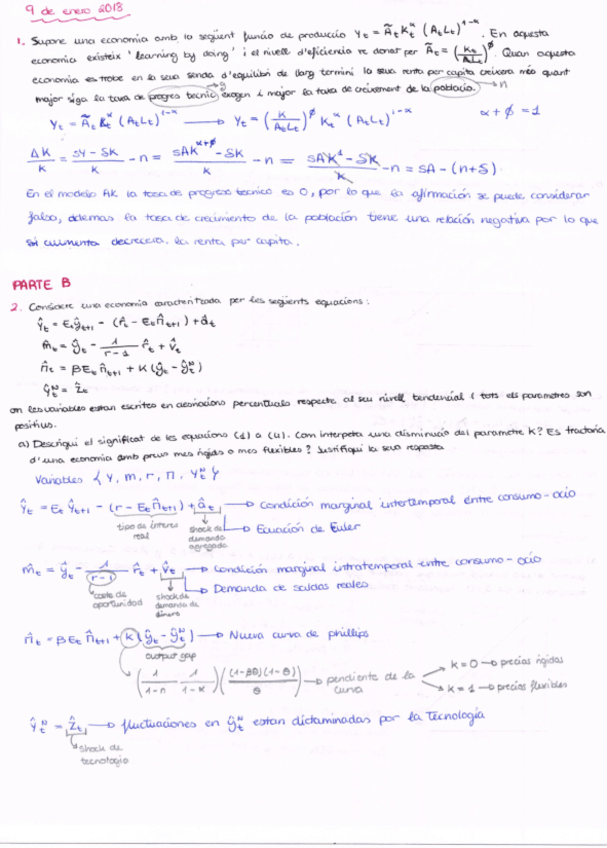 9 de enero 2018
1. Supone una economia amb la següent funcio de produccio Yt = Ãt Kt^α (At Lt)^1-α. En aquesta
economia existeix 'learning by doing' i el nivell d'eficiencia ve donat per Ãt = (Kt/AtLt)^ø. Quan aquesta
economia es trobe en la seva senda d'equilibri de llarg termini la seua renta per capita creixera mes quant
major siga la taxa de progres tecnic exogen i major la taxa de creixement de la poblacio. → n
Yt = Ãt Kt^α (At Lt)^1-α → Yt = (K/AtLt)^ø Kt^α (At Lt)^1-α α + ø = 1
ΔK/K = sY - SK/K - n = sAK^α+ø - SK/K - n = sAK^1 - SK/K - n = sA - (n+S)
En el modelo AK la tasa de progreso tecnico es 0, por lo que la afirmación se puede considerar
falsa, ademas la tasa de crecimiento de la población tiene una relación negativa por lo que
si aumenta decrecera la renta per capita.
PARTE B
2. Considere una economia caracteritzada per les següents equacions:
Ŷt = Et ŷt+1 - (r̂t - Et n̂t+1) + ât
m̂t = ŷt - 1/r-1 r̂t + v̂t
n̂t = βEt n̂t+1 + K(ŷt - ŷt^N)
ŷt^N = Ẑt
on les variables estan escrites en desviacions percentuals respecte al seu nivell tendencial i tots els parametres son
positius.
a) Descrigui el significat de les equacions (1) a (4). Com interpeta una disminucio del parametre K? Es tractaria
d'una economia amb preus mes rigids o mes flexibles? Justifiqui la seva resposta
Variables { Y, m, r, Π, Yt^N }
Ŷt = Et Ŷt+1 - (r - Et n̂t+1) + ât → Condición marginal intertemporal entre consumo - ocio
tipo de interes
real
shock de
demanda
agregada
→ Ecuación de Euler
m̂t = ŷt - 1/r-1 r̂t + v̂t → Condición marginal intratemporal entre consumo - ocio
→ Demanda de saldos reales
coste de
oportunidad
shock de
demanda de
dinero
n̂t = βEt n̂t+1 + k(ŷt - ŷt^N) → Nueva curva de phillips
output gap
(1/1-n 1/1-K) ((1-βθ)(1-θ)/θ) → pendiente de la
curva
k = 0 → precios rigidos
k = 1 → precios flexibles
Ŷt^N = Ẑt → fluctuaciones en ŷt^N estan dictaminadas por la Tecnología
shock de
tecnologia